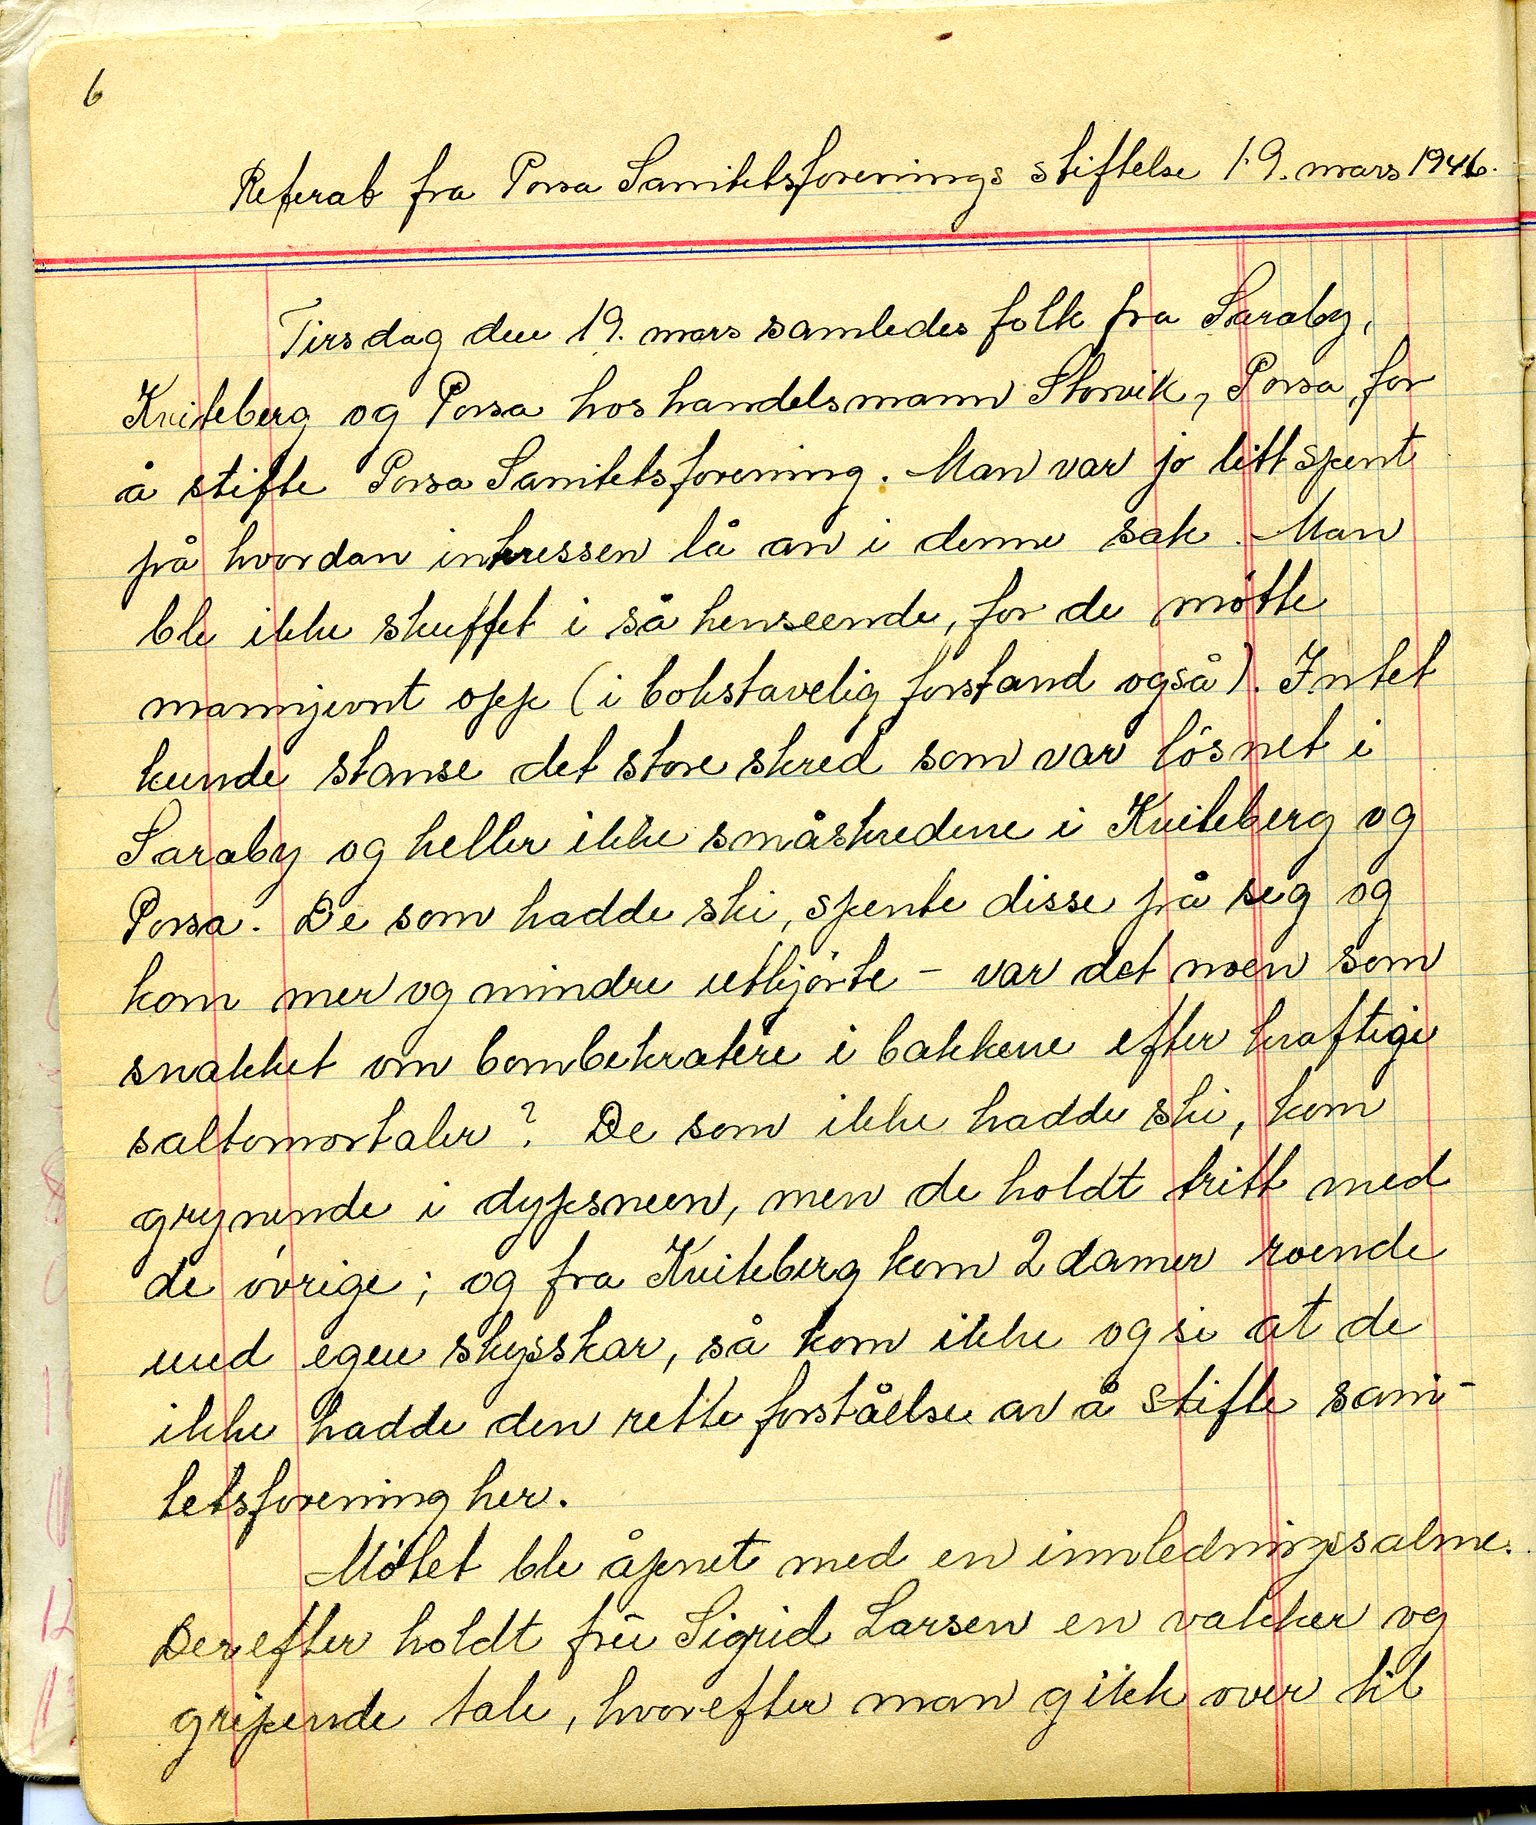 6
Referat fra Porsa Sanitetsforenings stiftelse 19. mars 1946.
Tirsdag den 19. mars samledes folk fra Saraby,
Kviteberg og Porsa hos handelsmann Storvik, Porsa, for
å stifte Porsa Sanitetsforening. Man var jo litt spent
på hvordan intressen lå an i denne sak. Man
ble ikke skuffet i så henseende, for de møtte
mannjevnt opp (i bokstavelig forstand også). Intet
kunde stanse det store skred som var løsnet i
Saraby og heller ikke småskredene i Kviteberg og
Porsa. De som hadde ski, spente disse på seg og
kom mer og mindre utkjørte - var det noen som
snakket om bombekratere i bakkene efter kraftige
saltomortaler? De som ikke hadde ski, kom
grynende i dypsneen, men de holdt tritt med
de øvrige; og fra Kviteberg kom 2 damer roende
med egen skysskar, så kom ikke og si at de
ikke hadde den rette forståelse av å stifte sani-
tetsforening her.
Møtet ble åpnet med en innledningssalme.
Derefter holdt frü Sigrid Larsen en vakker og
gripende tale, hvorefter man gikk over til